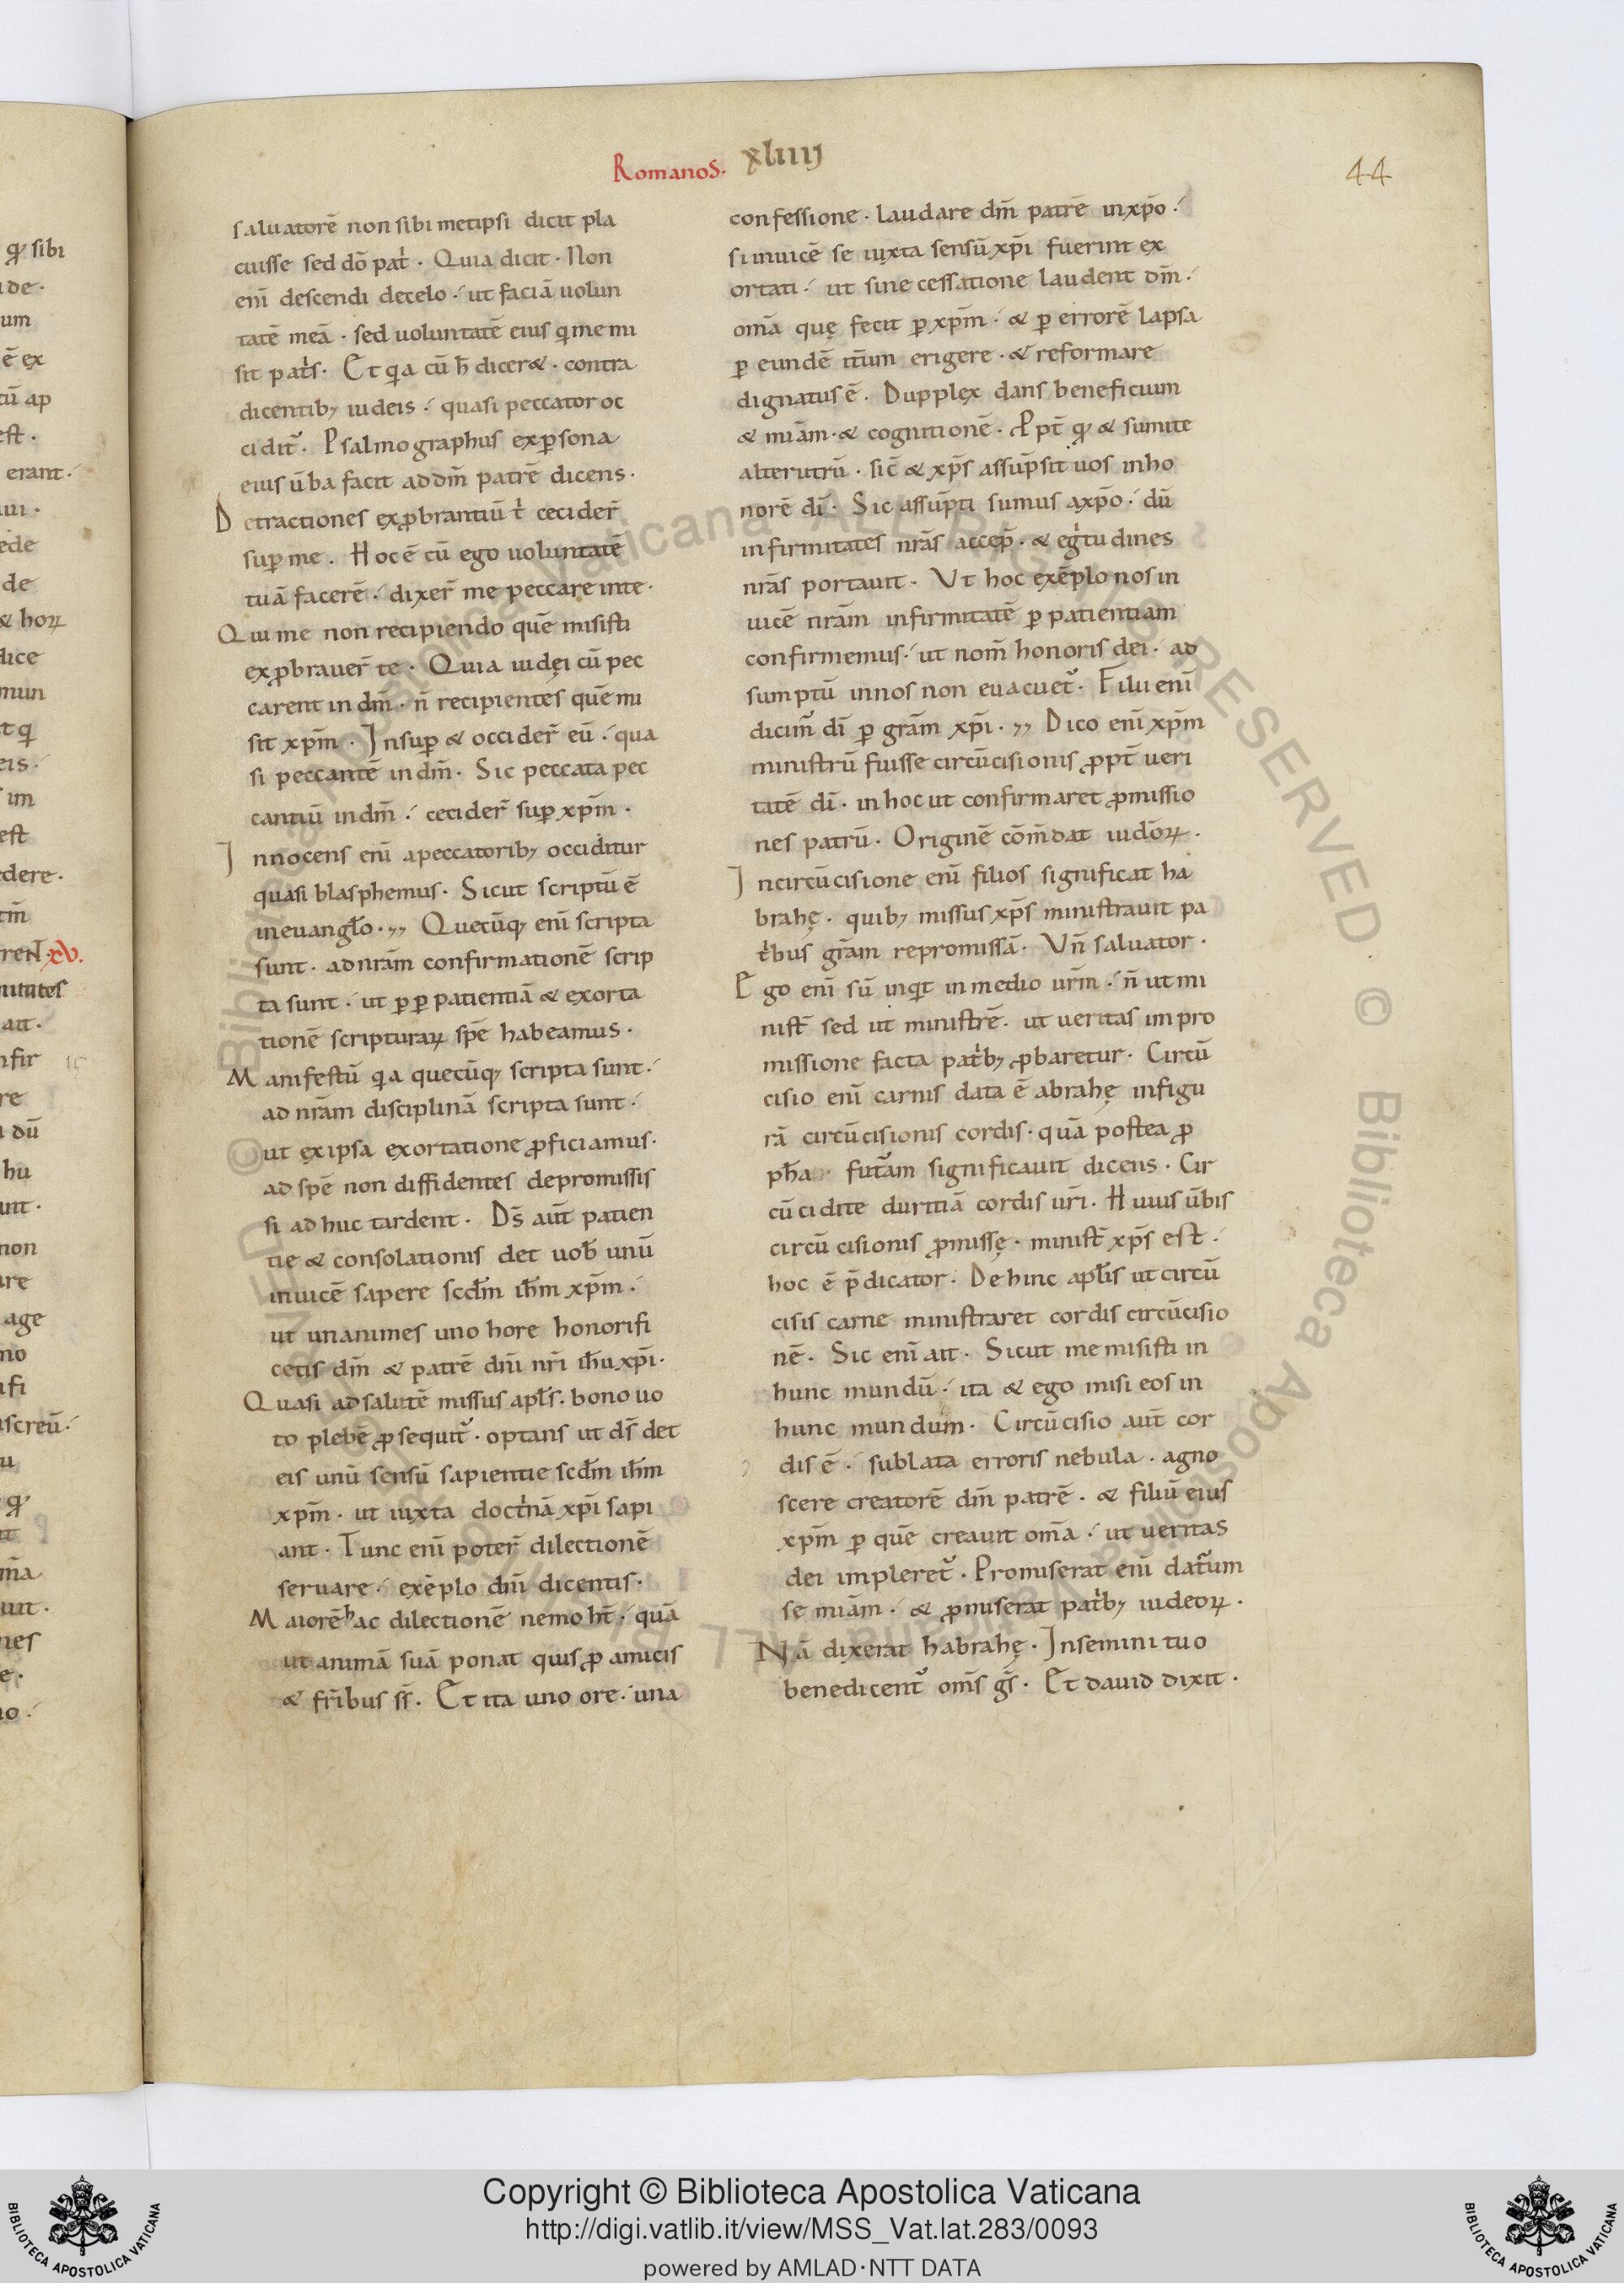 Romanos. xliiij
44
saluatorē non sibi metipsi dicit pla
cuisse sed dō pat͛ . Quia dicit . Non
enī descendi decelo ·́ ut faciā uolun
tatē meā . sed uoluntatē eius qͥ me mi
sit pat͛s . Et qͥa cū h̄ dicer& . contra
dicentibꝫ iudeis ·́ quasi peccator oc
cidit᷑ . Psalmographus exꝑsona
eius ūba facit addm̄ patrē dicens .
Detractiones exꝓbrantiū t͛ cecider̄
suꝑ me . Hoc ē cū ego uoluntatē
tuā facerē ·́ dixer̄ me peccare inte .
Qui me non recipiendo quē misisti
exꝓbrauer̄ te . Quia iudęi cū pec
carent in dm̄ . n̄ recipientes quē mi
sit xp̄m . Insuꝑ & occider̄ eū ·́ qua
si peccantē indm̄ . Sic peccata pec
cantiū indm̄ ·́ cecider̄ suꝑ xp̄m .
Innocens enī apeccatoribꝫ occiditur
quasi blasphemus . Sicut scriptū ē
ineuangło . ,, Quecūqꝫ enī scripta
sunt . adnrām confirmationē scrip
ta sunt ·́ ut ꝑ ꝑ patientiā & exorta
tionē scripturaꝝ spē habeamus .
Manifestū qͥa quecūqꝫ scripta sunt ·́
ad nrām disciplinā scripta sunt ·́
ut exipsa exortatione ꝓficiamus .
ad spē non diffidentes depromissis
si ad huc tardent . Ds̄ aūt patien
tie & consolationis det uob̄ unū
inuicē sapere scđm ih̄m xp̄m ·́
ut unanimes uno hore honorifi
cetis dm̄ & patrē dnī nr̄i ih̄u xp̄i .
Quasi adsalutē missus apłs . bono uo
to plebē ꝓsequit᷑ . optans ut ds̄ det
eis unū sensū sapientie scđm ih̄m
xp̄m . ut iuxta doct͛nā xp̄i sapi
ant . Tunc enī poter̄ dilectionē
seruare ·́ exēplo dnī dicentis .
Maiorē hac dilectionē nemo ht̄ ·́ quā
ut animā suā ponat quis ꝓ amicis
& fr̄ibus ss̄ . Et ita uno ore ·́ una
confessione . laudare dm̄ patrē inxp̄o ·́
si inuicē se iuxta sensū xp̄i fuerint ex
ortati ·́ ut sine cessatione laudent dm̄ ·́
om̄a quę fecit ꝑ xp̄m ·́ & ꝑ errorē lapsa
ꝑ eundē it̄um erigere . & reformare
dignatus ē . Dupplex dans beneficium
& miām . & cognitionē . Ꝓpt̄ qͦ & sumite
alterutrū . sic̄ & xp̄s assūpsit uos inho
norē dī . Sic assūpti sumus axp̄o ·́ dū
infirmitates nrās accep̄ . & eg͛tudines
nrās portauit . Vt hoc exēplo nos in
uicē nrām infirmitatē ꝑ patientiam
confirmemus ·́ ut nom̄ honoris dei . ad
sumptū innos non euacuet᷑ . Filii enī
dicim᷑ dī ꝑ grām xp̄i . ,, Dico enī xp̄m
ministrū fuisse circūcisionis ꝓpt̄ ueri
tatē dī . in hoc ut confirmaret ꝓmissio
nes patrū . Originē cōm̄dat iudōꝝ .
Incircūcisione enī filios significat ha
brahę . quibꝫ missus xp̄s ministrauit pa
t͛bus grām repromissā . Vn̄ saluator .
Ego enī sū inqͥt in medio urm̄ ·́ n̄ ut mi
nist̄ sed ut ministrē . ut ueritas impro
missione facta pat͛bꝫ ꝓbaretur . Circū
cisio enī carnis data ē abrahę infigu
rā circūcisionis cordis . quā postea ꝓ
ph̄a fut᷑am significauit dicens . Cir
cū cidite duritiā cordis ur̄i . Huius ūbis
circū cisionis ꝓmissę . minist̄ xp̄s est ·́
hoc ē p̄dicator . Dehinc apłis ut circū
cisis carne ministraret cordis circūcisio
nē . Sic enī ait . Sicut me misisti in
hunc mundū ·́ ita & ego misi eos in
hunc mundum . Circūcisio aūt cor
dis ē ·́ sublata erroris nebula . agno
scere creatorē dm̄ patrē . & filiū eius
xp̄m ꝑ quē creauit om̄a ·́ ut ueritas
dei impleret᷑ . Promiserat enī dat᷑um
se miām ·́ & ꝓmiserat pat͛bꝫ iudeoꝝ .
Nā dixerat habrahę . Insemini tuo
benedicent᷑ om̄s gs̄ . Et dauid dixit .
Copyright © Biblioteca Apostolica Vaticana
http://digi.vatlib.it/view/MSS_Vat.lat.283/0093
powered by AMLAD·NTT DATA
BIBLIOTECA APOSTOLICA VATICANA
BIBLIOTECA APOSTOLICA VATICANA